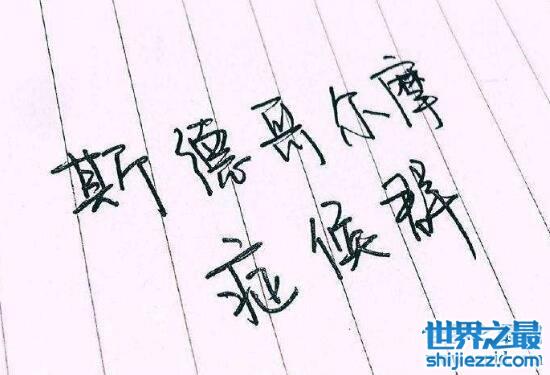 斯德哥尔摩
症候群
世界之最
shijiezz.com